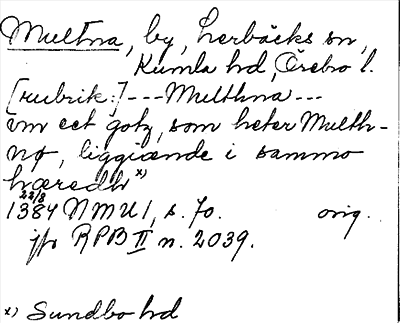 Multna, by, Lerbäcks sn,
Kumla hd, Örebo l.
[rubrik:] --- Multhna ---
um eet gotz, som heter Multh-
nø, liggiande i sammo
hæredh x)
22/8
1384 NMU 1, s. 70. orig.
jfr RPB II n. 2039.
x) Sundbo hd